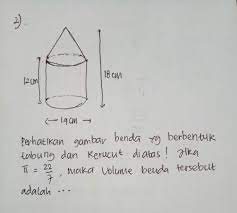 2)
12 cm
18 cm
14 cm
Perhatikan gambar benda yg berbentuk
tabung dan kerucut diatas! Jika
π = 22/7, maka volume benda tersebut
adalah ...